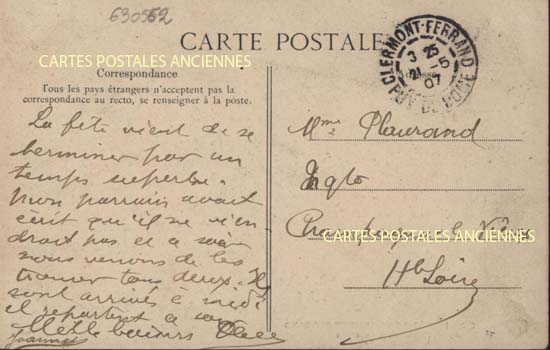 630562
CARTES POSTALES ANCIENNES
CARTE POSTALE
Correspondance
Tous les pays étrangers n'acceptent pas la
correspondance au recto, se renseigner à la poste.
CLERMONT-FERRAND
3 25
21 -5
07
PUY DE DOME
La fête vient de se
terminer par un
temps superbe.
Mon parrain avait
écrit qu'il ne vien
drait pas et a soir
nous venons de les
trouver tous deux. Ils
sont arrivés à midi
et repartent a
Meilleurs
Mme Fleurand
Champagnac le Vieux
CARTES POSTALES ANCIENNES
Hte Loire